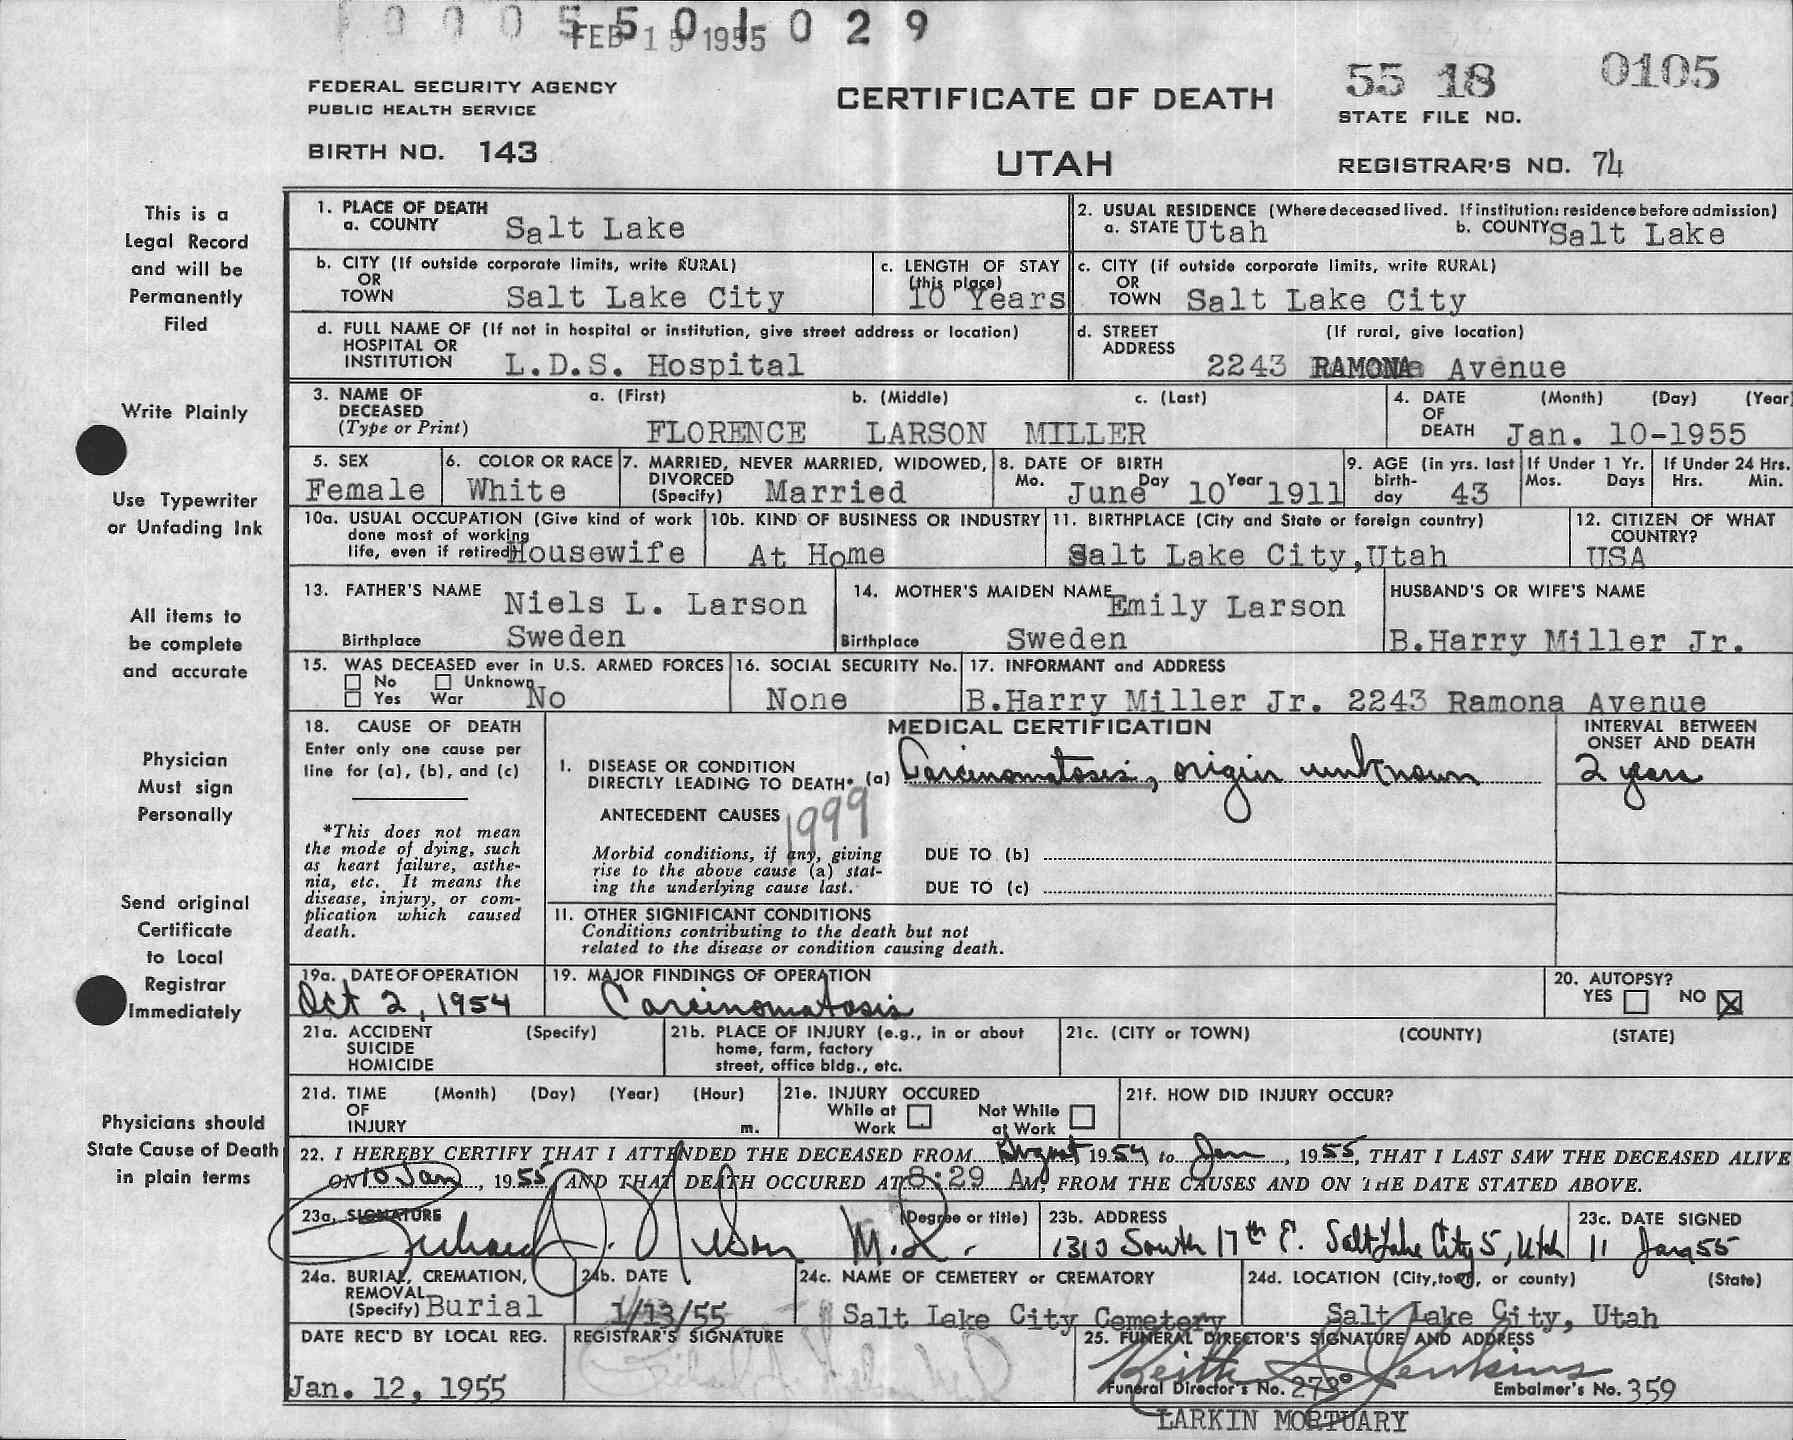 0 0 0 5 5 0 1 0 2 9
FEB 15 1955
FEDERAL SECURITY AGENCY
PUBLIC HEALTH SERVICE
BIRTH NO. 143
CERTIFICATE OF DEATH
UTAH
55 18 0105
STATE FILE NO.
REGISTRAR'S NO. 74
This is a
Legal Record
and will be
Permanently
Filed
Write Plainly
Use Typewriter
or Unfading Ink
All items to
be complete
and accurate
Physician
Must sign
Personally
Send original
Certificate
to Local
Registrar
Immediately
Physicians should
State Cause of Death
in plain terms
1. PLACE OF DEATH
a. COUNTY Salt Lake
2. USUAL RESIDENCE (Where deceased lived. If institution: residence before admission)
a. STATE Utah b. COUNTY Salt Lake
b. CITY (If outside corporate limits, write RURAL)
OR
TOWN Salt Lake City
c. LENGTH OF STAY
(this place)
10 Years
c. CITY (if outside corporate limits, write RURAL)
OR
TOWN Salt Lake City
d. FULL NAME OF (If not in hospital or institution, give street address or location)
HOSPITAL OR
INSTITUTION L.D.S. Hospital
d. STREET (If rural, give location)
ADDRESS
2243 RAMONA Avenue
3. NAME OF a. (First) b. (Middle) c. (Last)
DECEASED
(Type or Print) FLORENCE LARSON MILLER
4. DATE (Month) (Day) (Year)
OF
DEATH Jan. 10-1955
5. SEX
Female
6. COLOR OR RACE
White
7. MARRIED, NEVER MARRIED, WIDOWED,
DIVORCED
(Specify) Married
8. DATE OF BIRTH
Mo. Day Year
June 10 1911
9. AGE (in yrs. last
birth-
day 43
If Under 1 Yr.
Mos. Days
If Under 24 Hrs.
Hrs. Min.
10a. USUAL OCCUPATION (Give kind of work
done most of working
life, even if retired) Housewife
10b. KIND OF BUSINESS OR INDUSTRY
At Home
11. BIRTHPLACE (City and State or foreign country)
Salt Lake City, Utah
12. CITIZEN OF WHAT
COUNTRY?
USA
13. FATHER'S NAME Niels L. Larson
Birthplace Sweden
14. MOTHER'S MAIDEN NAME Emily Larson
Birthplace Sweden
HUSBAND'S OR WIFE'S NAME
B.Harry Miller Jr.
15. WAS DECEASED ever in U.S. ARMED FORCES
No Unknown
Yes War No
16. SOCIAL SECURITY No.
None
17. INFORMANT and ADDRESS
B.Harry Miller Jr. 2243 Ramona Avenue
18. CAUSE OF DEATH
Enter only one cause per
line for (a), (b), and (c)
*This does not mean
the mode of dying, such
as heart failure, asthe-
nia, etc. It means the
disease, injury, or com-
plication which caused
death.
MEDICAL CERTIFICATION
I. DISEASE OR CONDITION
DIRECTLY LEADING TO DEATH* (a) Carcinomatosis, origin unknown
ANTECEDENT CAUSES 1999
Morbid conditions, if any, giving
rise to the above cause (a) stat-
ing the underlying cause last.
DUE TO (b)
DUE TO (c)
INTERVAL BETWEEN
ONSET AND DEATH
2 years
11. OTHER SIGNIFICANT CONDITIONS
Conditions contributing to the death but not
related to the disease or condition causing death.
19a. DATE OF OPERATION
Oct 2, 1954
19. MAJOR FINDINGS OF OPERATION
Carcinomatosis
20. AUTOPSY?
YES NO X
21a. ACCIDENT (Specify)
SUICIDE
HOMICIDE
21b. PLACE OF INJURY (e.g., in or about
home, farm, factory
street, office bldg., etc.
21c. (CITY or TOWN) (COUNTY) (STATE)
21d. TIME (Month) (Day) (Year) (Hour)
OF
INJURY m.
21e. INJURY OCCURED
While at Work
Not While at Work
21f. HOW DID INJURY OCCUR?
22. I HEREBY CERTIFY THAT I ATTENDED THE DECEASED FROM August 1954 to Jan, 1955, THAT I LAST SAW THE DECEASED ALIVE
ON 10 Jan, 1955 AND THAT DEATH OCCURED AT 8:29 AM, FROM THE CAUSES AND ON THE DATE STATED ABOVE.
23a. SIGNATURE (Degree or title)
Richard J. Nelson M.D.
23b. ADDRESS
1310 South 17th E. Salt Lake City 5, Utah
23c. DATE SIGNED
11 Jan 55
24a. BURIAL, CREMATION,
REMOVAL
(Specify) Burial
24b. DATE
1/13/55
24c. NAME OF CEMETERY or CREMATORY
Salt Lake City Cemetery
24d. LOCATION (City, town, or county) (State)
Salt Lake City, Utah
DATE REC'D BY LOCAL REG.
Jan. 12, 1955
REGISTRAR'S SIGNATURE
25. FUNERAL DIRECTOR'S SIGNATURE AND ADDRESS
Keith S. Jenkins
Funeral Director's No. 273 Embalmer's No. 359
LARKIN MORTUARY